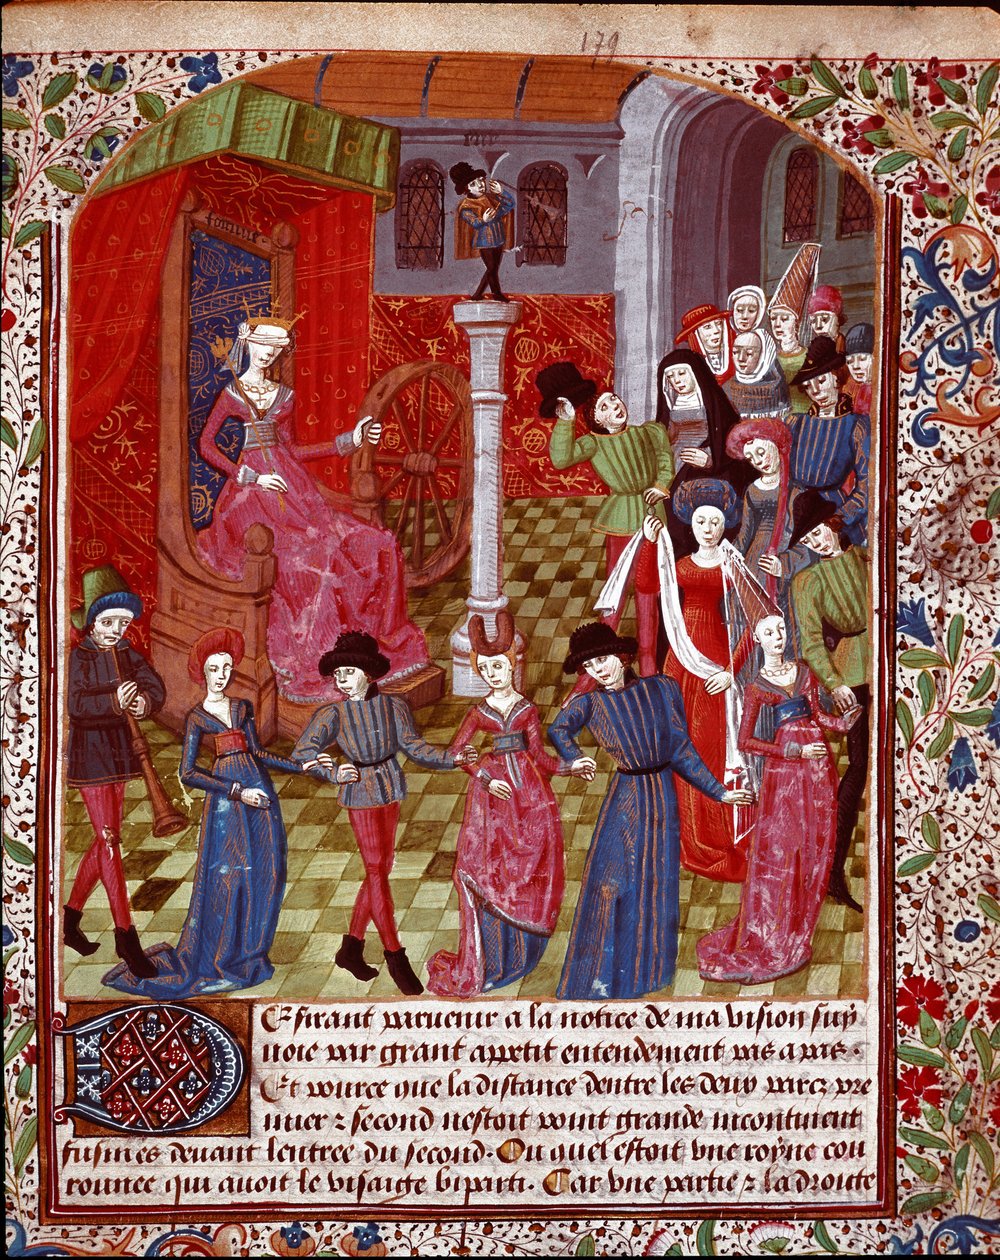 179
fortune
Esirant paruenir a la notice de ma vision suy
uoie par grant appetit entendement pas a pas.
Et pource que la distance dentre les deux parcz pre
mier z second nestoit point grande incontinent
fusmes deuant lentree du second. Ou quel estoit vne royne cou
ronnee qui auoit le visaige biparti. Car vne partie z la droitte